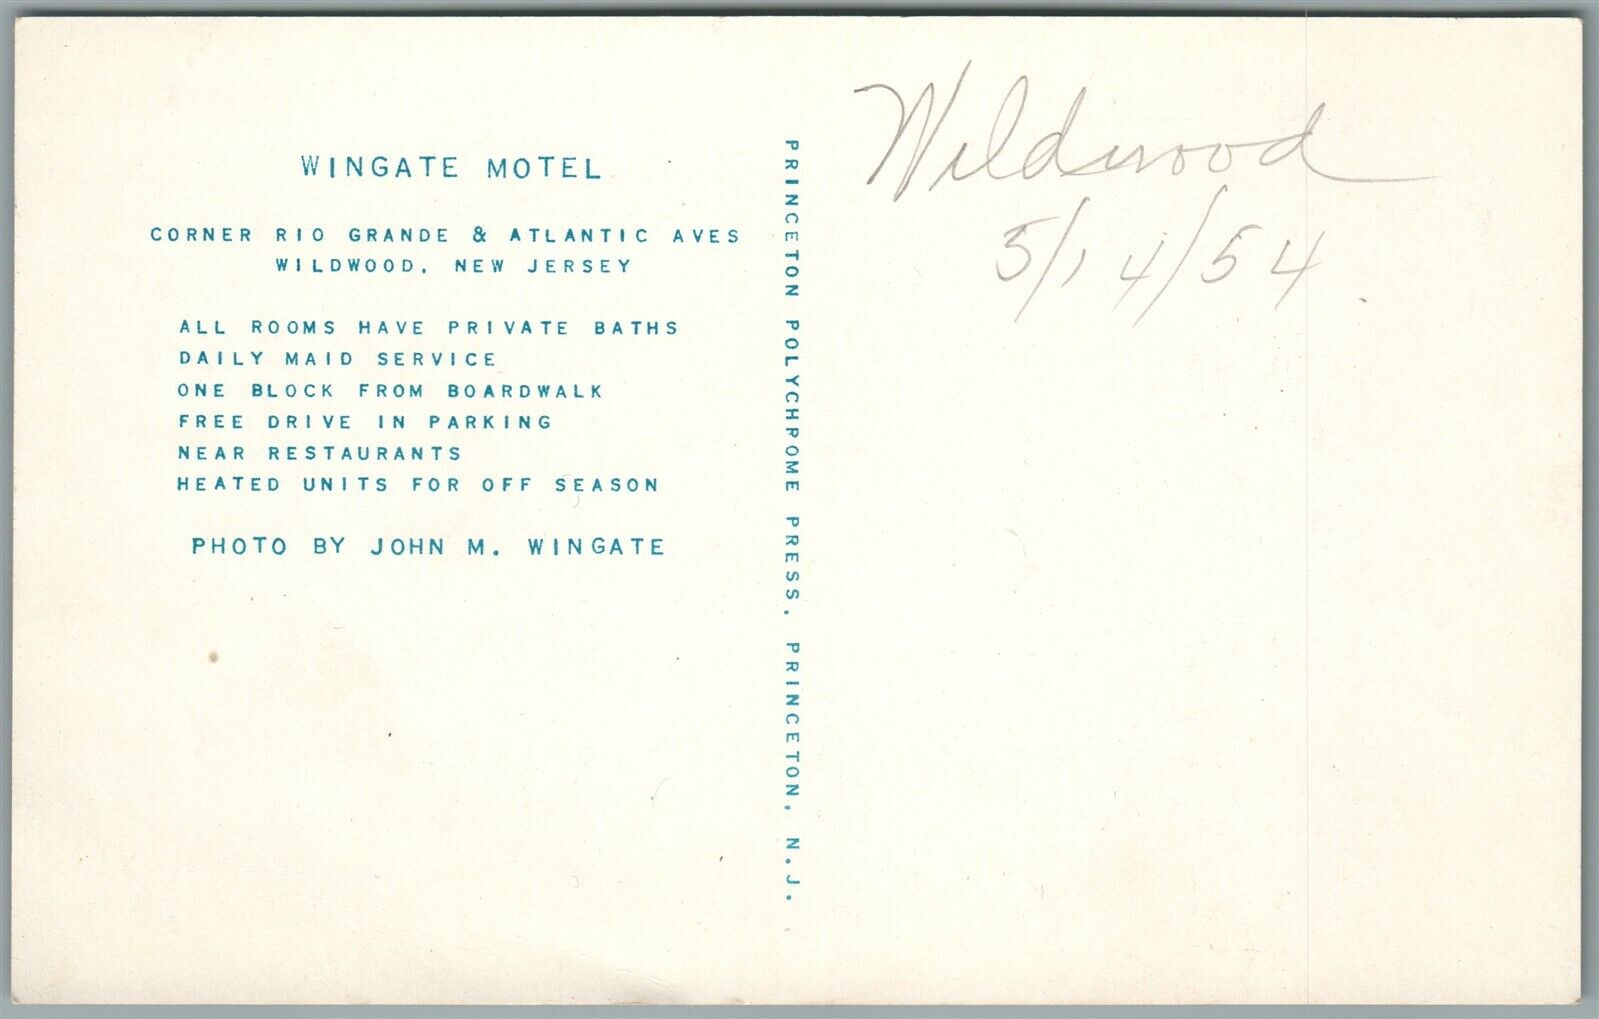 WINGATE MOTEL
CORNER RIO GRANDE & ATLANTIC AVES
WILDWOOD, NEW JERSEY
ALL ROOMS HAVE PRIVATE BATHS
DAILY MAID SERVICE
ONE BLOCK FROM BOARDWALK
FREE DRIVE IN PARKING
NEAR RESTAURANTS
HEATED UNITS FOR OFF SEASON
PHOTO BY JOHN M. WINGATE
PRINCETON POLYCHROME PRESS, PRINCETON, N.J.
Wildwood
5/14/54